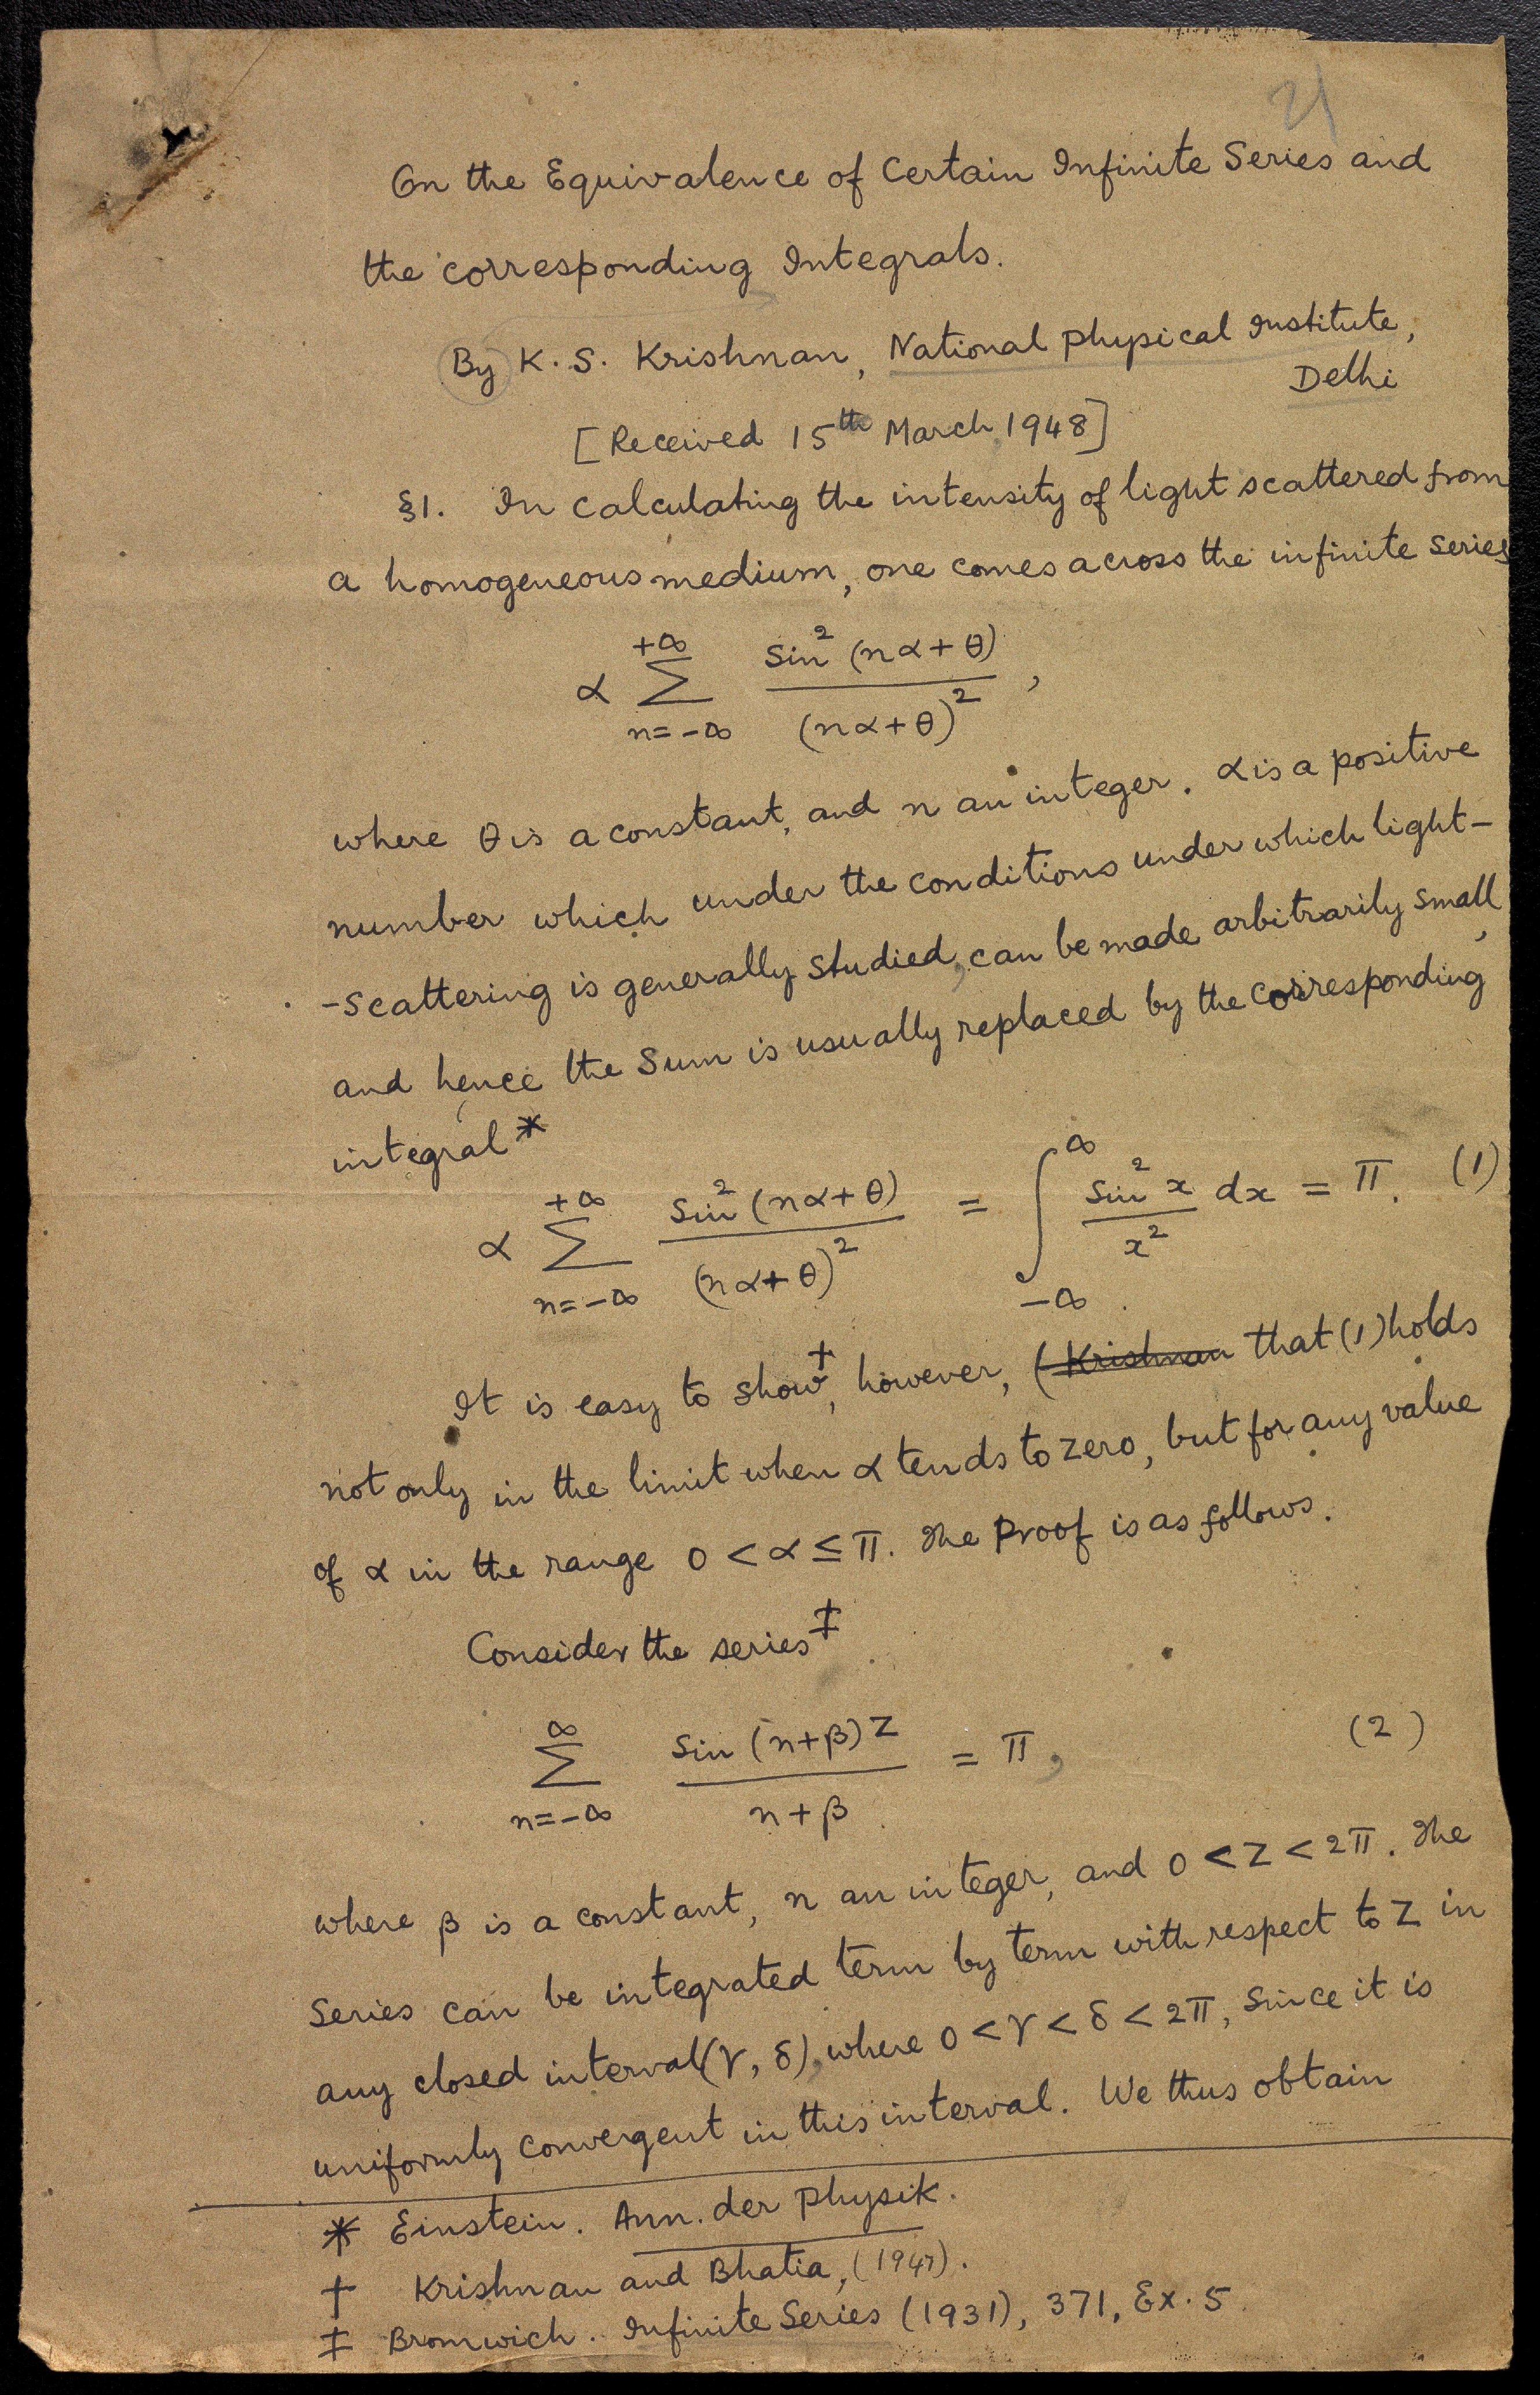 21
On the Equivalence of Certain Infinite Series and
the corresponding Integrals.
By K. S. Krishnan, National Physical Institute,
Delhi
[Received 15th March 1948]
§1. In calculating the intensity of light scattered from
a homogeneous medium, one comes across the infinite series
α ∑_{n=-∞}^{+∞} sin²(nα+θ)/(nα+θ)²,
where θ is a constant, and n an integer. α is a positive
number which under the conditions under which light-
-scattering is generally studied, can be made arbitrarily small,
and hence the sum is usually replaced by the corresponding
integral*
α ∑_{n=-∞}^{+∞} sin²(nα+θ)/(nα+θ)² = ∫_{-∞}^{∞} sin²x/x² dx = π. (1)
It is easy to show†, however, (Krishnan that (1) holds
not only in the limit when α tends to zero, but for any value
of α in the range 0 < α ≤ π. The proof is as follows.
Consider the series‡
∑_{n=-∞}^{∞} sin(n+β)z/(n+β) = π, (2)
where β is a constant, n an integer, and 0 < z < 2π. The
series can be integrated term by term with respect to z in
any closed interval (γ, δ), where 0 < γ < δ < 2π, since it is
uniformly convergent in this interval. We thus obtain
* Einstein. Ann. der Physik.
† Krishnan and Bhatia, (1947).
‡ Bromwich. Infinite Series (1931), 371, Ex. 5